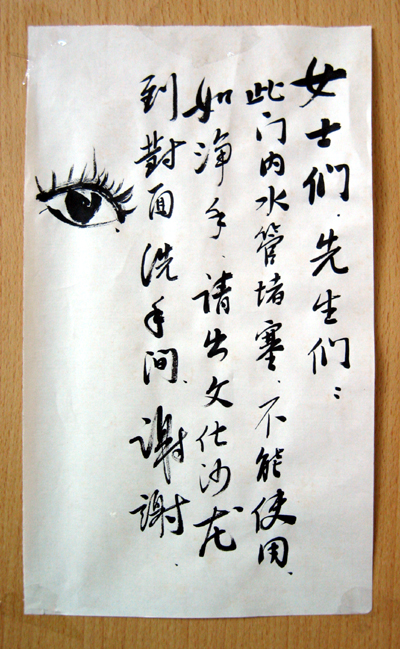 女士们、先生们：
此门内水管堵塞、不能使用、
如净手、请出文化沙龙
到對面洗手间、謝謝、